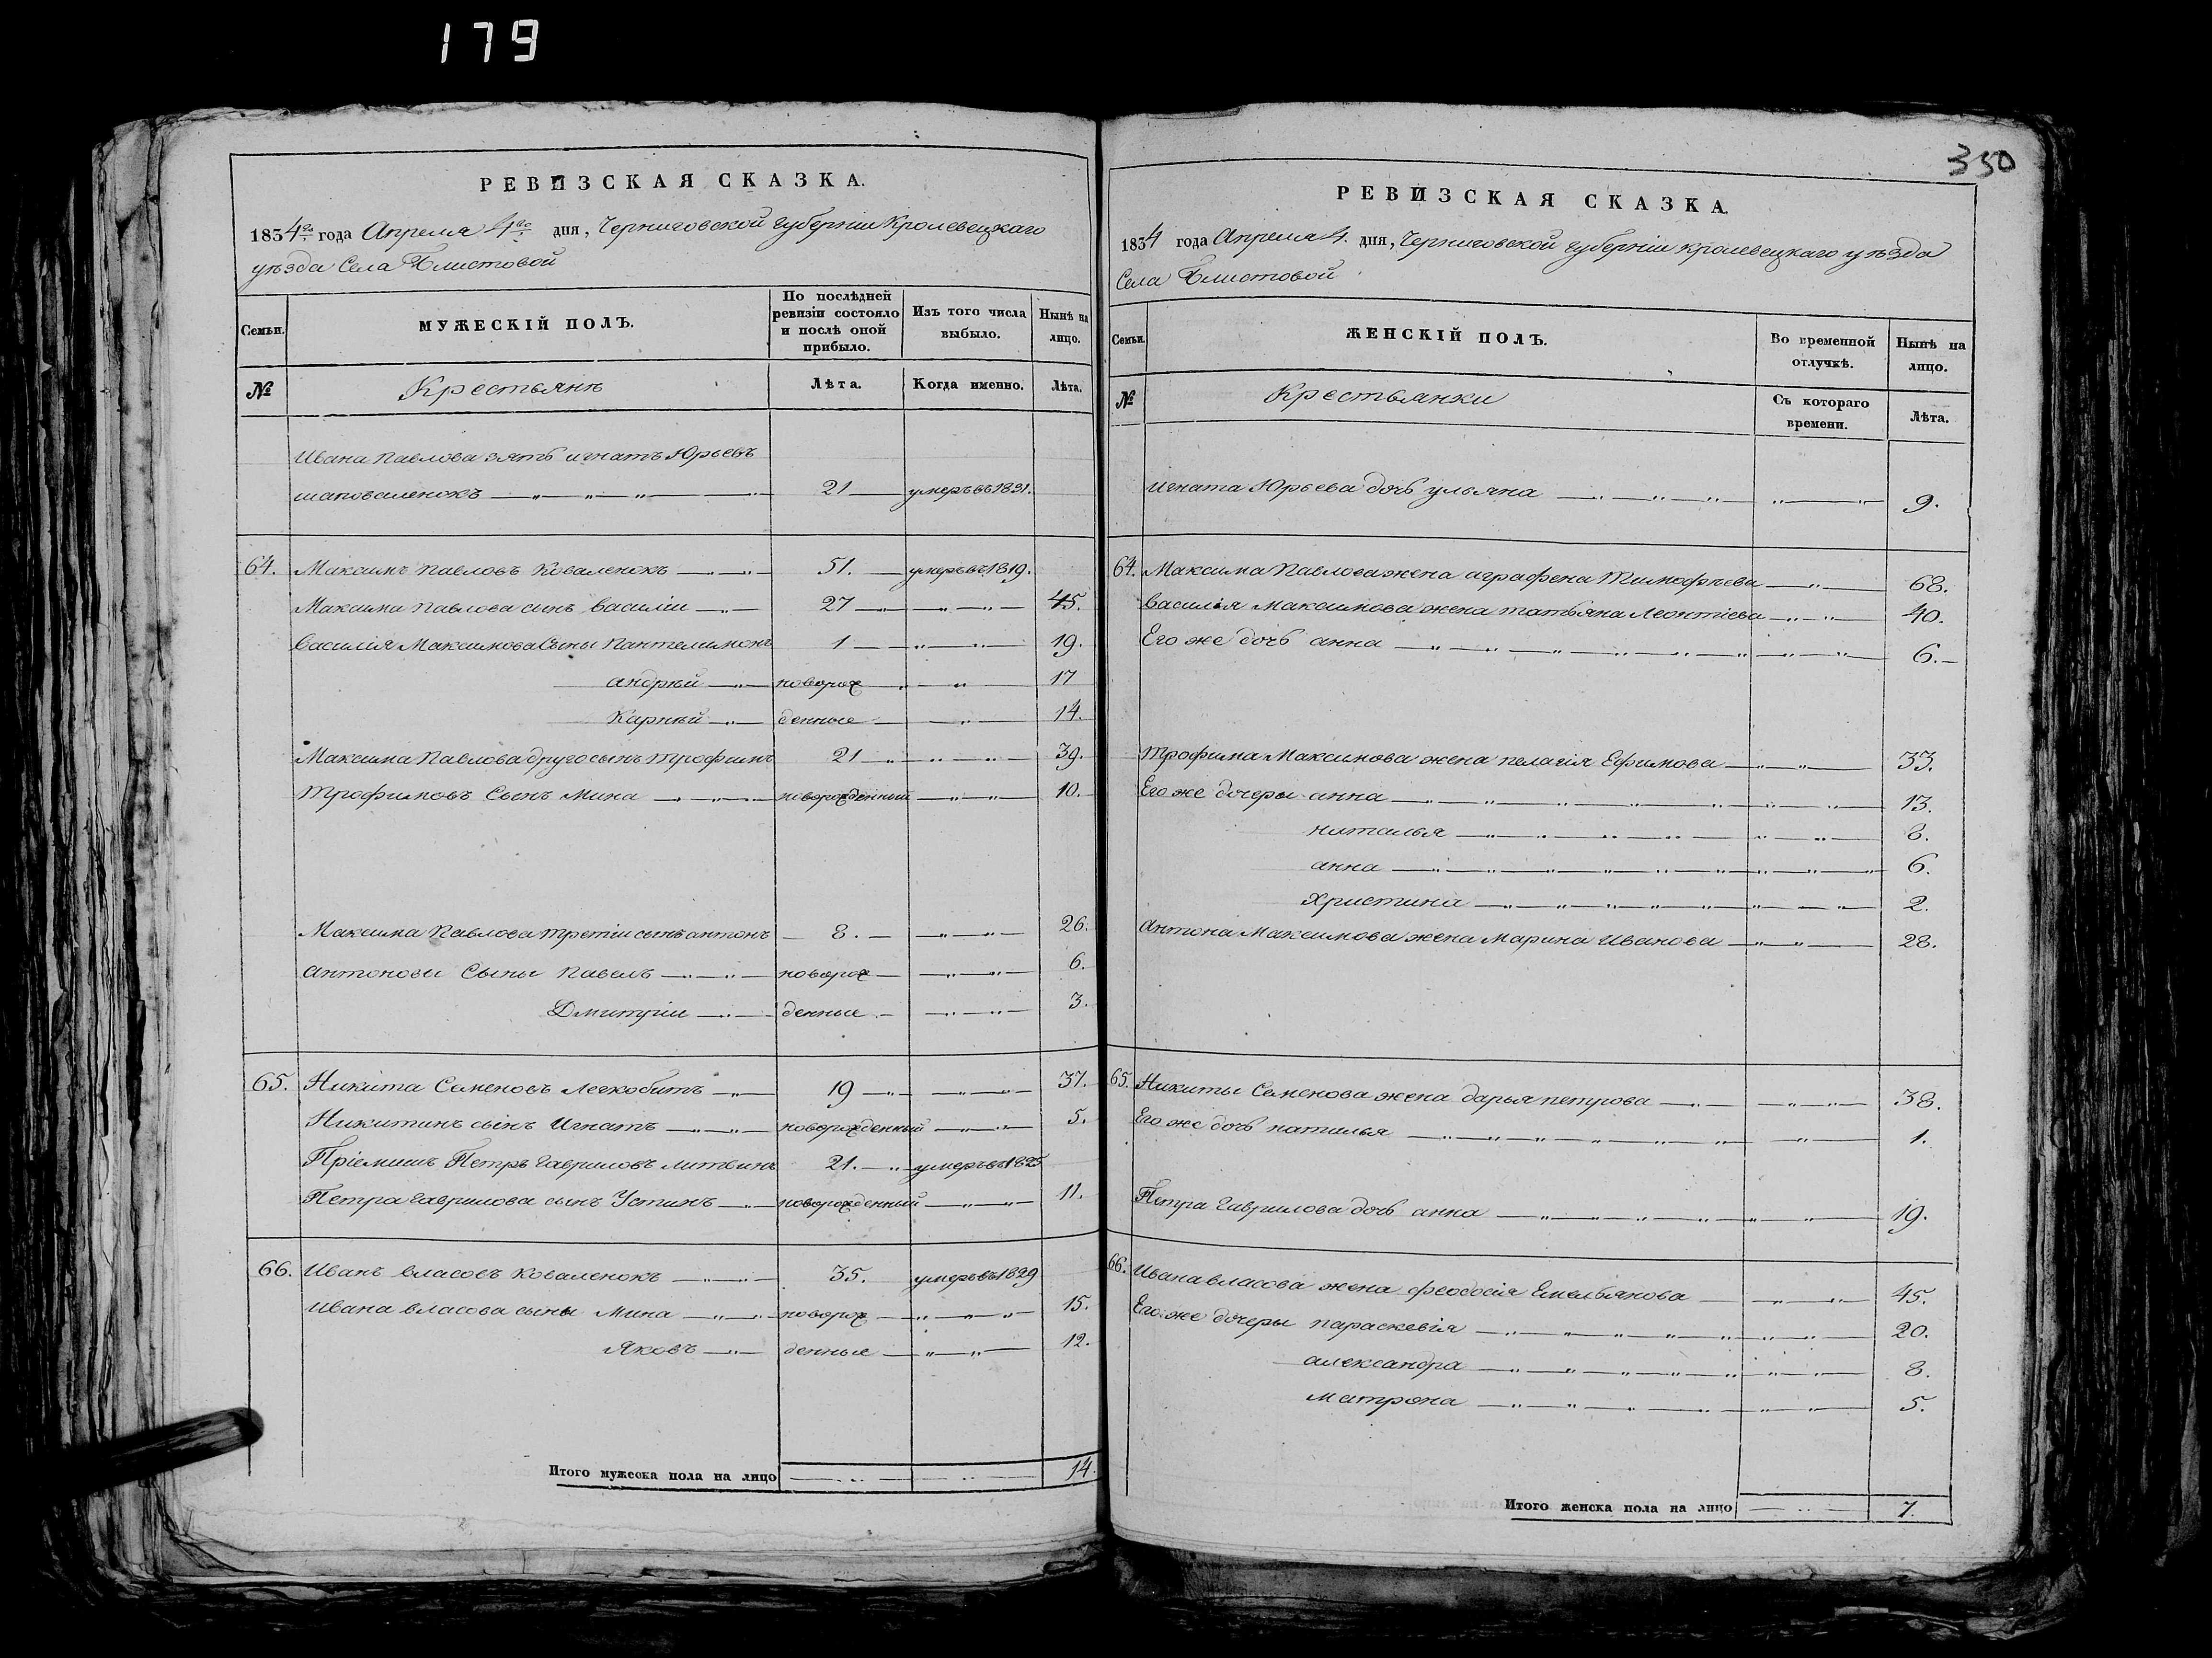 179
РЕВИЗСКАЯ СКАЗКА.
1834го года Апреля 4го дня, Черниговской губерніи Кролевецкаго
уѣзда Села Блистовой
Семьи.
МУЖЕСКІЙ ПОЛЪ.
По послѣдней ревизіи состояло и послѣ оной прибыло.
Изъ того числа выбыло.
Нынѣ на лицо.
№
Крестьянѣ
Лѣта.
Когда именно.
Лѣта.
Ивана Павлова зять игнатъ Юрьевъ
шаповаленокъ 21 умеръ въ 1831.
64. Максимъ Павловъ Коваленокъ 51. умеръ въ 1819.
Максима Павлова сынъ василіи 27 45.
василія Максимова Сыны Пантелимонъ 1 19.
андрѣй новорож 17
Карнѣй денные 14.
Максима Павлова другосынъ трофимъ 21 39.
трофимовъ Сынъ Мина новорожденный 10.
Максима Павлова третіи сынъ антонъ 8. 26.
антоновы Сыны Павелъ новорож 6.
Дмитріи денные 3.
65. Никита Семеновъ Легкобитъ 19 37.
Никитинъ сынъ Игнатъ новорожденный 5.
Пріемишъ Петръ Гавриловъ литвинъ 21. умеръ въ 1825
Петра Гаврилова сынъ Устинъ новорожденный 11.
66. Иванъ власовъ Коваленокъ 35. умеръ въ 1829
Ивана власова сыны Мина новорож 15.
Яковъ денные 12.
Итого мужеска пола на лицо 14.
350
РЕВИЗСКАЯ СКАЗКА.
1834 года Апреля 4. дня, Черниговской губерніи кролевецкаго уѣзда
Села Блистовой
Семьи.
ЖЕНСКІЙ ПОЛЪ.
Во временной отлучкѣ.
Нынѣ на лицо.
№
Крестьянки
Съ котораго времени.
Лѣта.
Игната Юрьева дочь ульяна 9.
64. Максима Павлова жена аграфена Тимофѣева 68.
василья Максимова жена татьяна Леонтіева 40.
Его же дочь анна 6.
Трофима Максимова жена пелагія Ефимова 33.
Его же дочеры анна 13.
наталья 8.
анна 6.
Христина 2.
антона Максимова жена Марина Иванова 28.
65. Никиты Семенова жена дарья петрова 38.
Его же дочь наталья 1.
Петра Гаврилова дочь анна 19.
66. Ивана власова жена феодосія Емельянова 45.
Его же дочеры параскевія 20.
александра 8.
Матрона 5.
Итого женска пола на лицо 7.